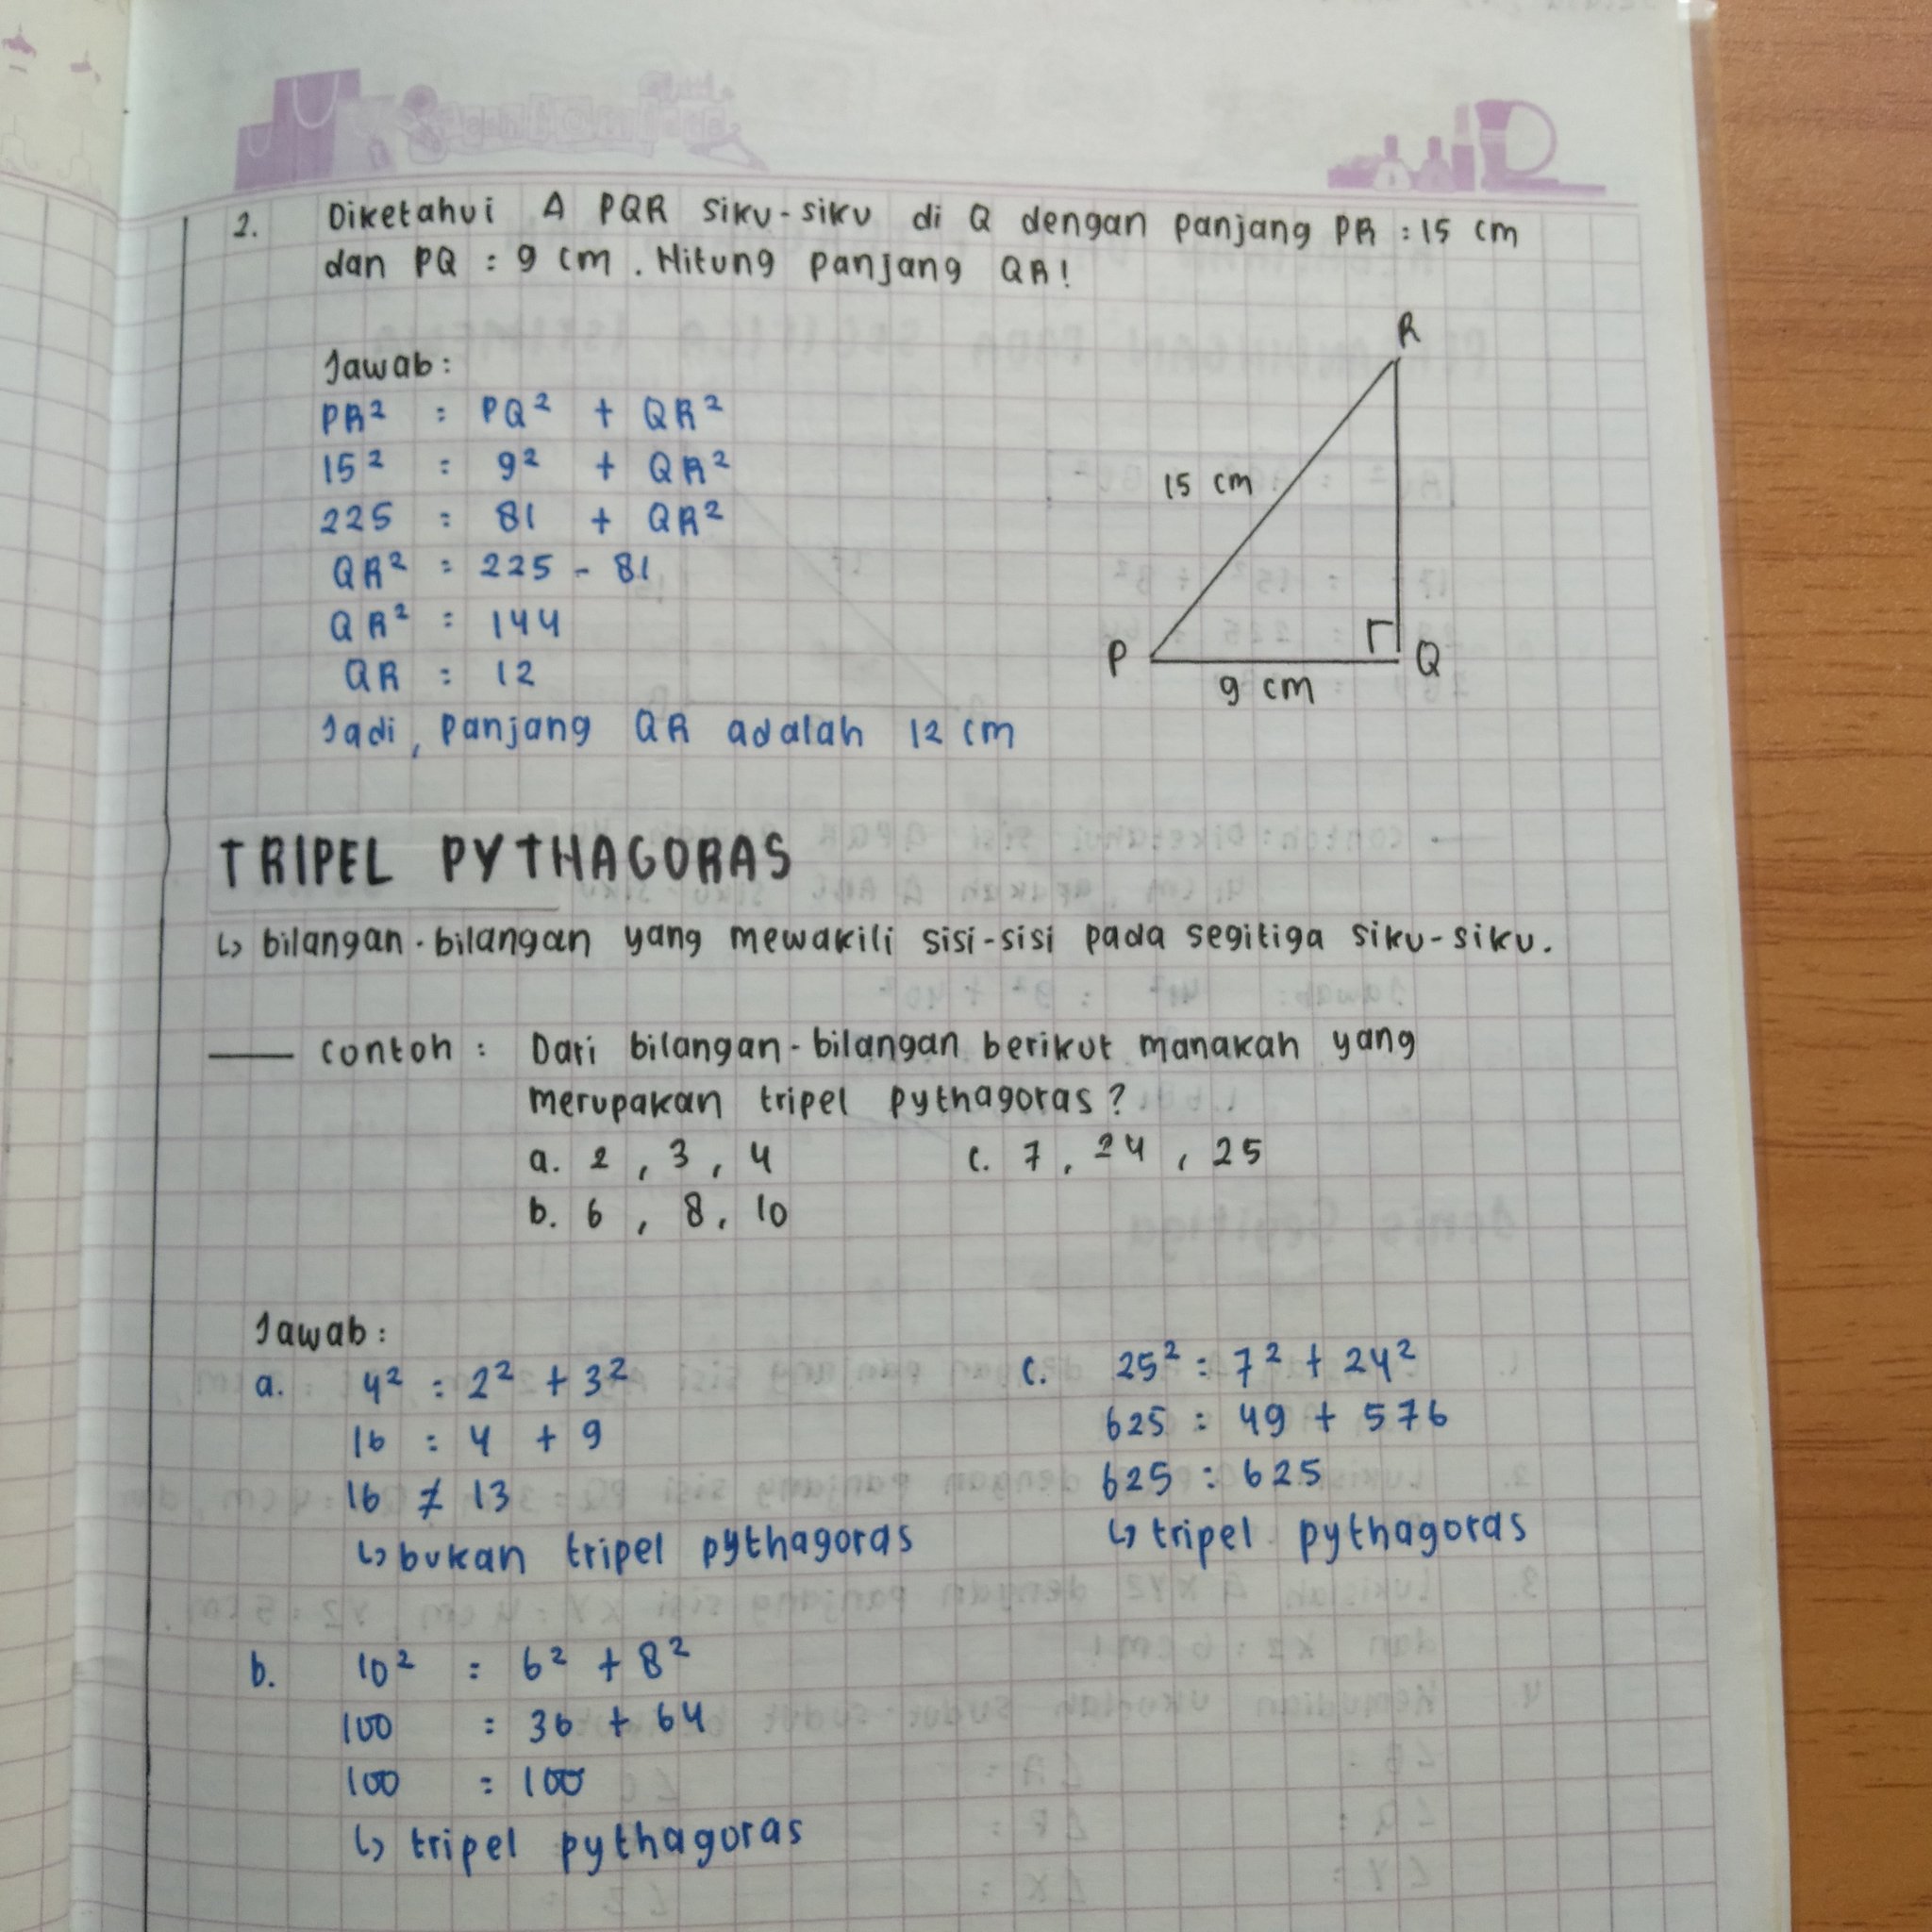 2. Diketahui Δ PQR siku-siku di Q dengan panjang PR : 15 cm
dan PQ : 9 cm . Hitung panjang QR!
Jawab :
PR² : PQ² + QR²
15² : 9² + QR²
225 : 81 + QR²
QR² : 225 - 81
QR² : 144
QR : 12
Jadi, panjang QR adalah 12 cm
R
15 cm
P
Q
9 cm
TRIPEL PYTHAGORAS
↳ bilangan-bilangan yang mewakili sisi-sisi pada segitiga siku-siku.
— contoh : Dari bilangan-bilangan berikut manakah yang
merupakan tripel pythagoras ?
a. 2 , 3 , 4
b. 6 , 8 , 10
c. 7 , 24 , 25
Jawab :
a. 4² : 2² + 3²
16 : 4 + 9
16 ≠ 13
↳ bukan tripel pythagoras
b. 10² : 6² + 8²
100 : 36 + 64
100 : 100
↳ tripel pythagoras
c. 25² : 7² + 24²
625 : 49 + 576
625 : 625
↳ tripel pythagoras